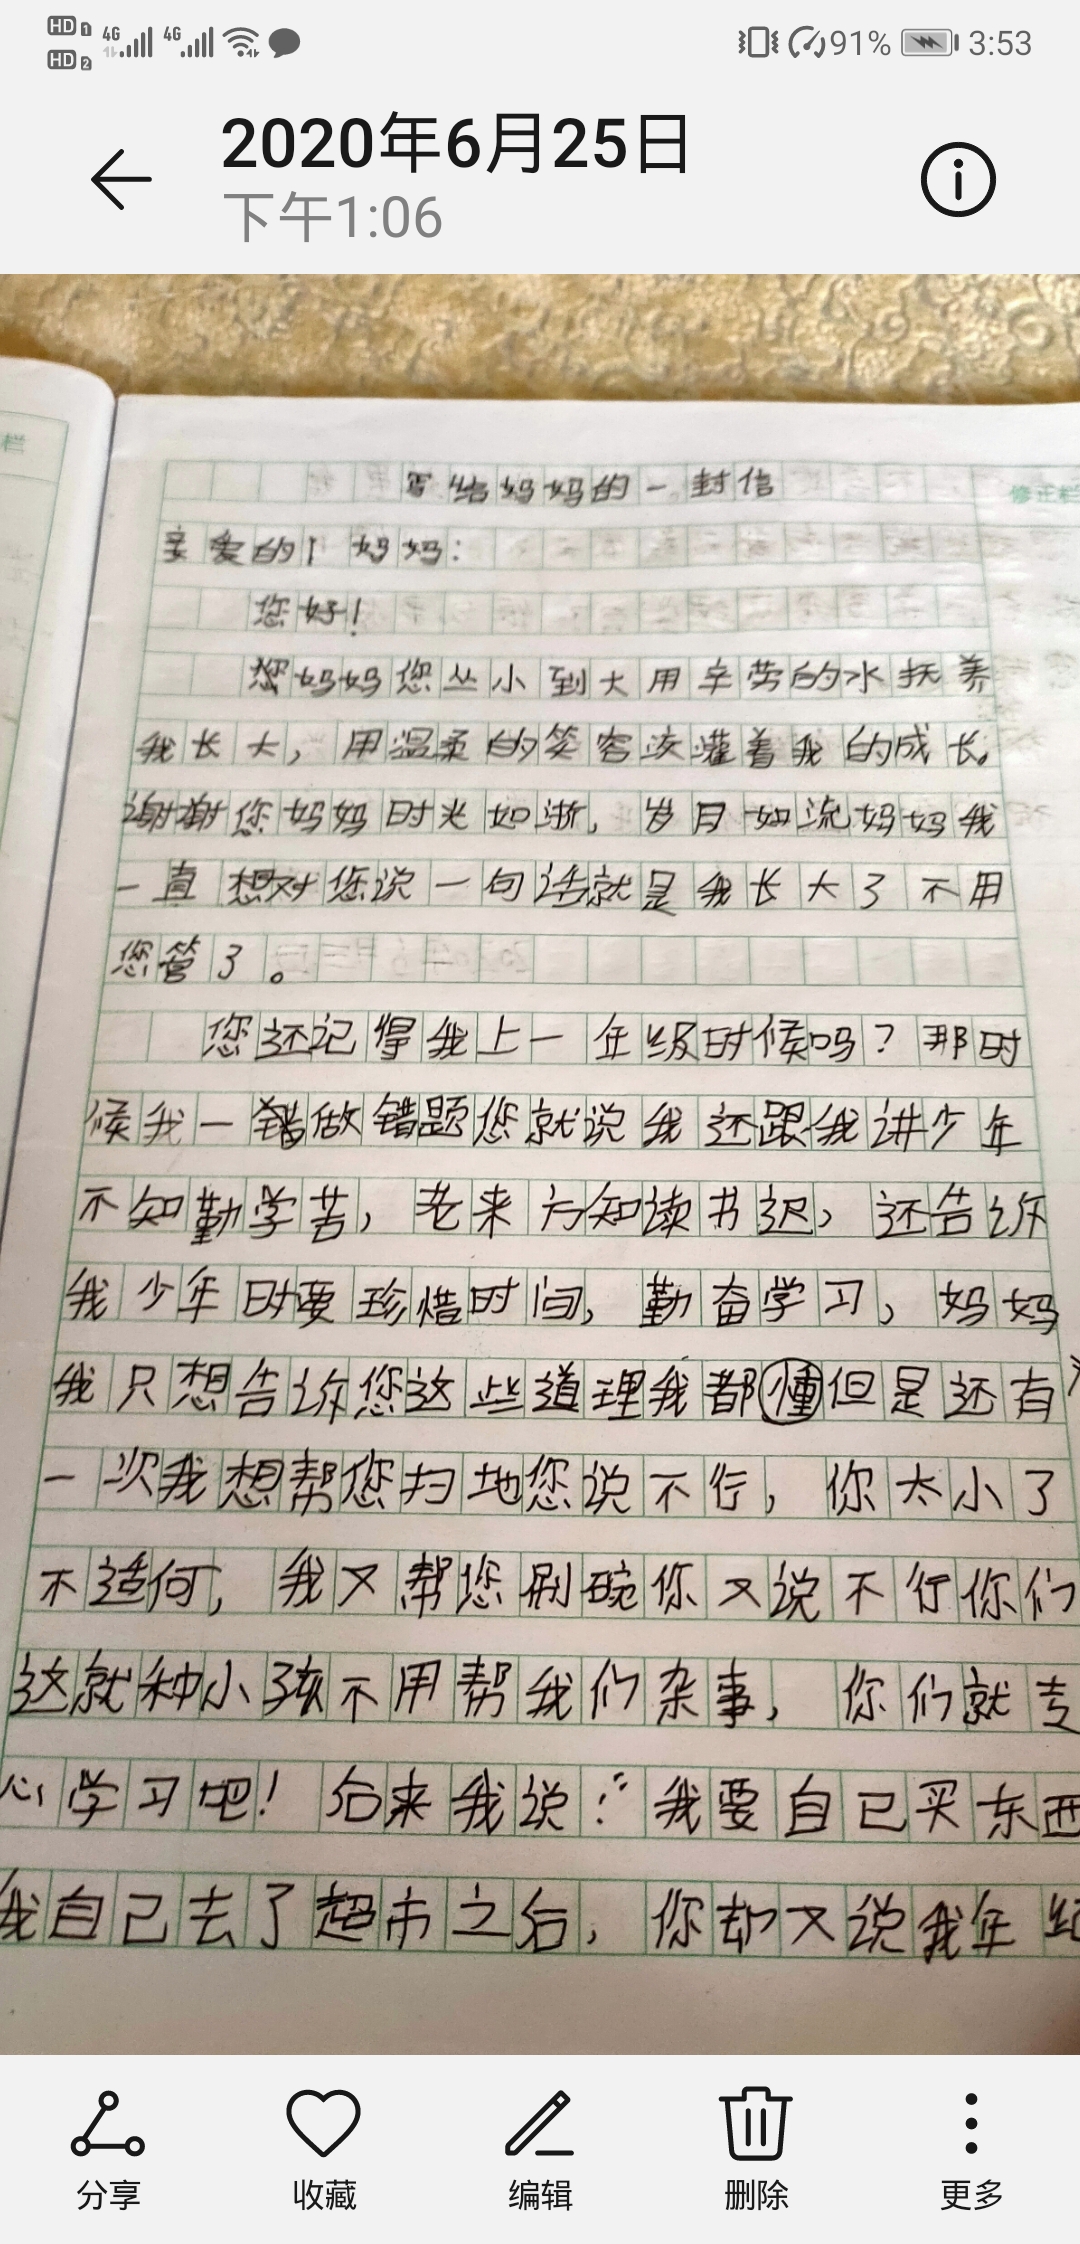 HD 1 4G 4G 91% 3:53
HD 2
2020年6月25日
下午1:06
栏
修正栏
写给妈妈的一封信
亲爱的 妈妈：
您好！
您妈妈您丛小到大用辛劳的水抚养
我长大，用温柔的笑容浇灌着我的成长。
谢谢您妈妈时光如浙，岁月如流妈妈我
一直想对您说一句话就是我长大了不用
您管了。
您还记得我上一年级时候吗？那时
候我一做错题您就说我还跟我讲少年
不知勤学苦，老来方知读书迟，还告诉
我少年时要珍惜时间，勤奋学习，妈妈
我只想告诉您这些道理我都懂但是还有
一次我想帮您扫地您说不行，你太小了
不适何，我又帮您刷碗你又说不行你们
这就种小孩不用帮我们杂事，你们就专
心学习吧！后来我说：“我要自己买东西
我自己去了超市之后，你却又说我年纪
分享 收藏 编辑 删除 更多